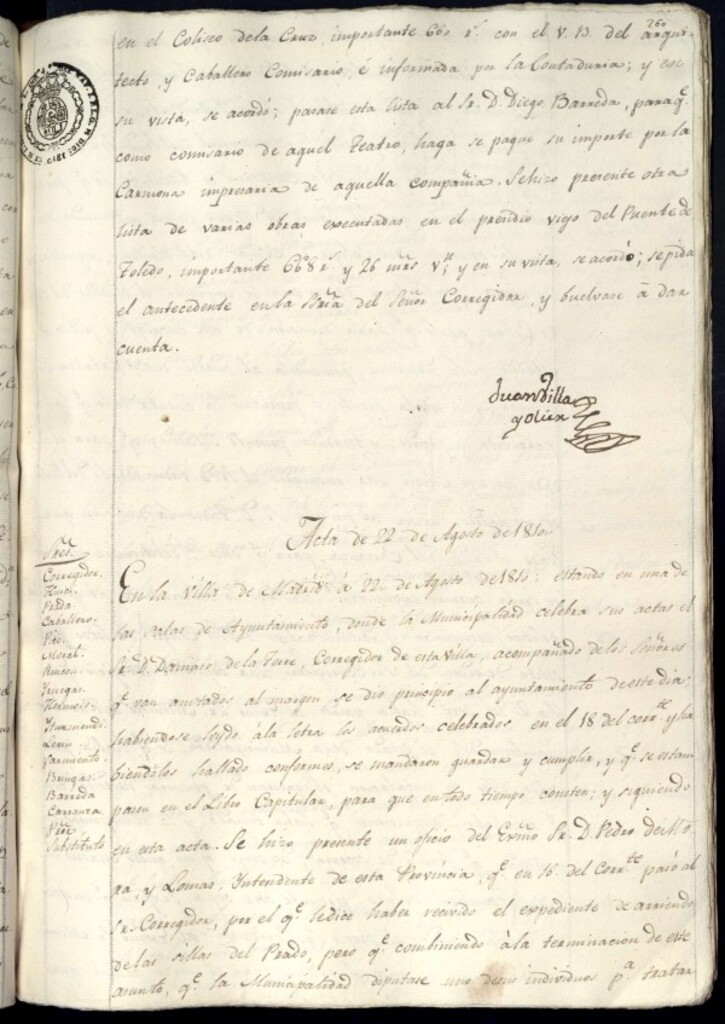 260
en el Coliseo dela Cruz importante 660 r.^s con el V. B. del arqui
tecto, y Caballero Comisario, é informada por la Contaduria; y en
su vista, se acordó; pasase esta lista al Sr. D. Diego Barreda, paraq.^e
como comisario de aquel Teatro, haga se pague su importe por la
Carmona impresaria de aquella compañia. Se hizo presente otra
lista de varias obras executadas en el presidio viejo del Puente de
Toledo, importante 668 r.^s y 26 mrs v.^n; y en su vista, se acordó; se pida
el antecedente en la Sría del Señor Corregidor, y buelvase á dar
cuenta.
Juan Villa
y Olier
Acta de 22 de Agosto de 1810.
Sres.
Corregidor.
Prada
Caballero.
Pio.
Moral.
Rincon.
Venegas.
Reinoso.
Yturmendi.
Leon.
Sarmiento.
Bringas.
Barreda
Carranza
Pror
Substituto
En la Villa de Madrid á 22 de Agosto de 1810: estando en una de
las Salas de Ayuntamiento, donde la Municipalidad celebra sus actas el
Sr. D. Damaso de la Torre, Corregidor de esta Villa, acompañado de los Señores
q.^e van anotados al margen se dio principio al ayuntamiento de este dia;
habiendose leydo á la letra los acuerdos celebrados en el 18 del corr.^te y ha
biendolos hallado conformes, se mandaron guardar y cumplir, y q.^e se estam
pasen en el Libro Capitular, para que en todo tiempo consten; y siguiendo
en esta acta. Se hizo presente un oficio del Exmo Sr. D. Pedro de Mo
ra, y Lomas, Yntendente de esta Provincia, q.^e en 16 del Corr.^te pasó al
Sr. Corregidor, por el q.^e le dice haber recivido el expediente de arriendo
de las sillas del Prado, pero q.^e combiniendo á la terminacion de este
asunto, q.^e la Municipalidad diputase uno de sus individuos p.^a tratar